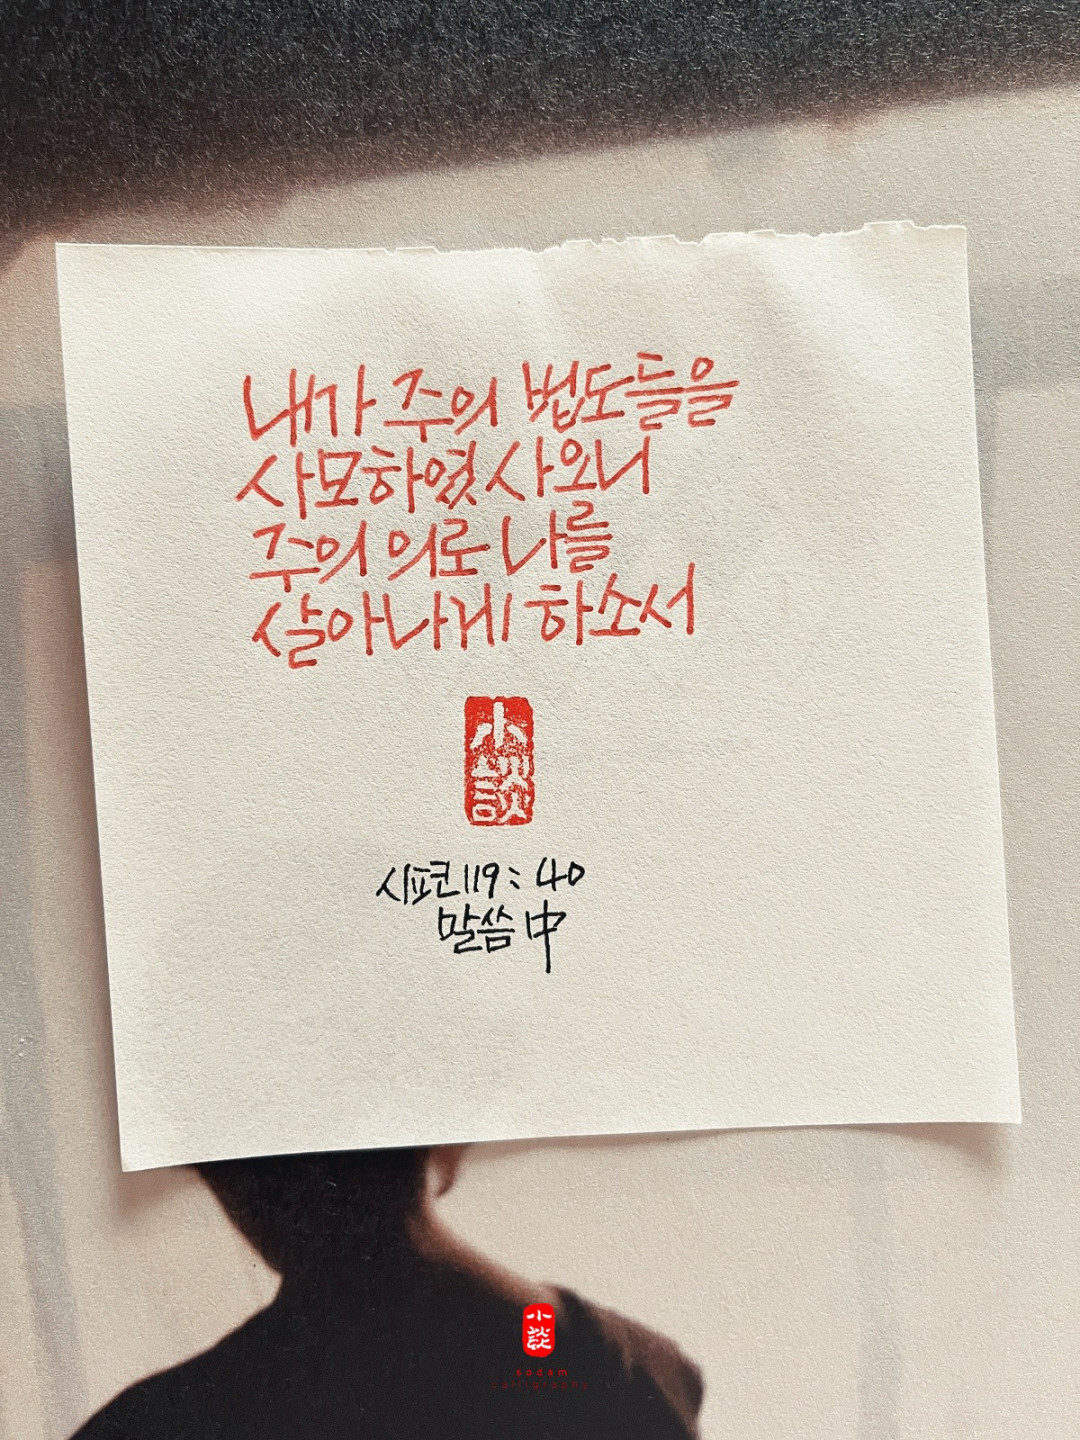 내가 주의 법도들을
사모하였사오니
주의 의로 나를
살아나게 하소서
小談
시편 119:40
말씀 中
小談
sodam
calligraphy